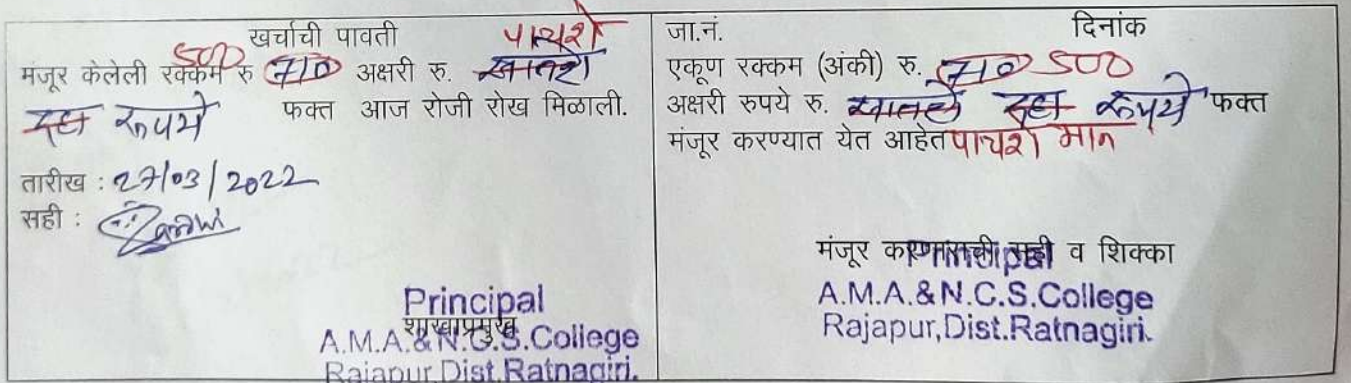 खर्चाची पावती
पाचशे
500
मंजूर केलेली रक्कम रु 710 अक्षरी रु. सातशे
दहा रूपये फक्त आज रोजी रोख मिळाली.
तारीख : 27/03/2022
सही :
Principal
शाखाप्रमुख
A.M.A.&N.C.S.College
Rajapur,Dist.Ratnagiri.
जा.नं. दिनांक
एकूण रक्कम (अंकी) रु. 710 500
अक्षरी रुपये रु. सातशे दहा रूपये फक्त
मंजूर करण्यात येत आहेत पाचशे मात्र
मंजूर करणाराची सही व शिक्का
Principal
A.M.A.&N.C.S.College
Rajapur,Dist.Ratnagiri.